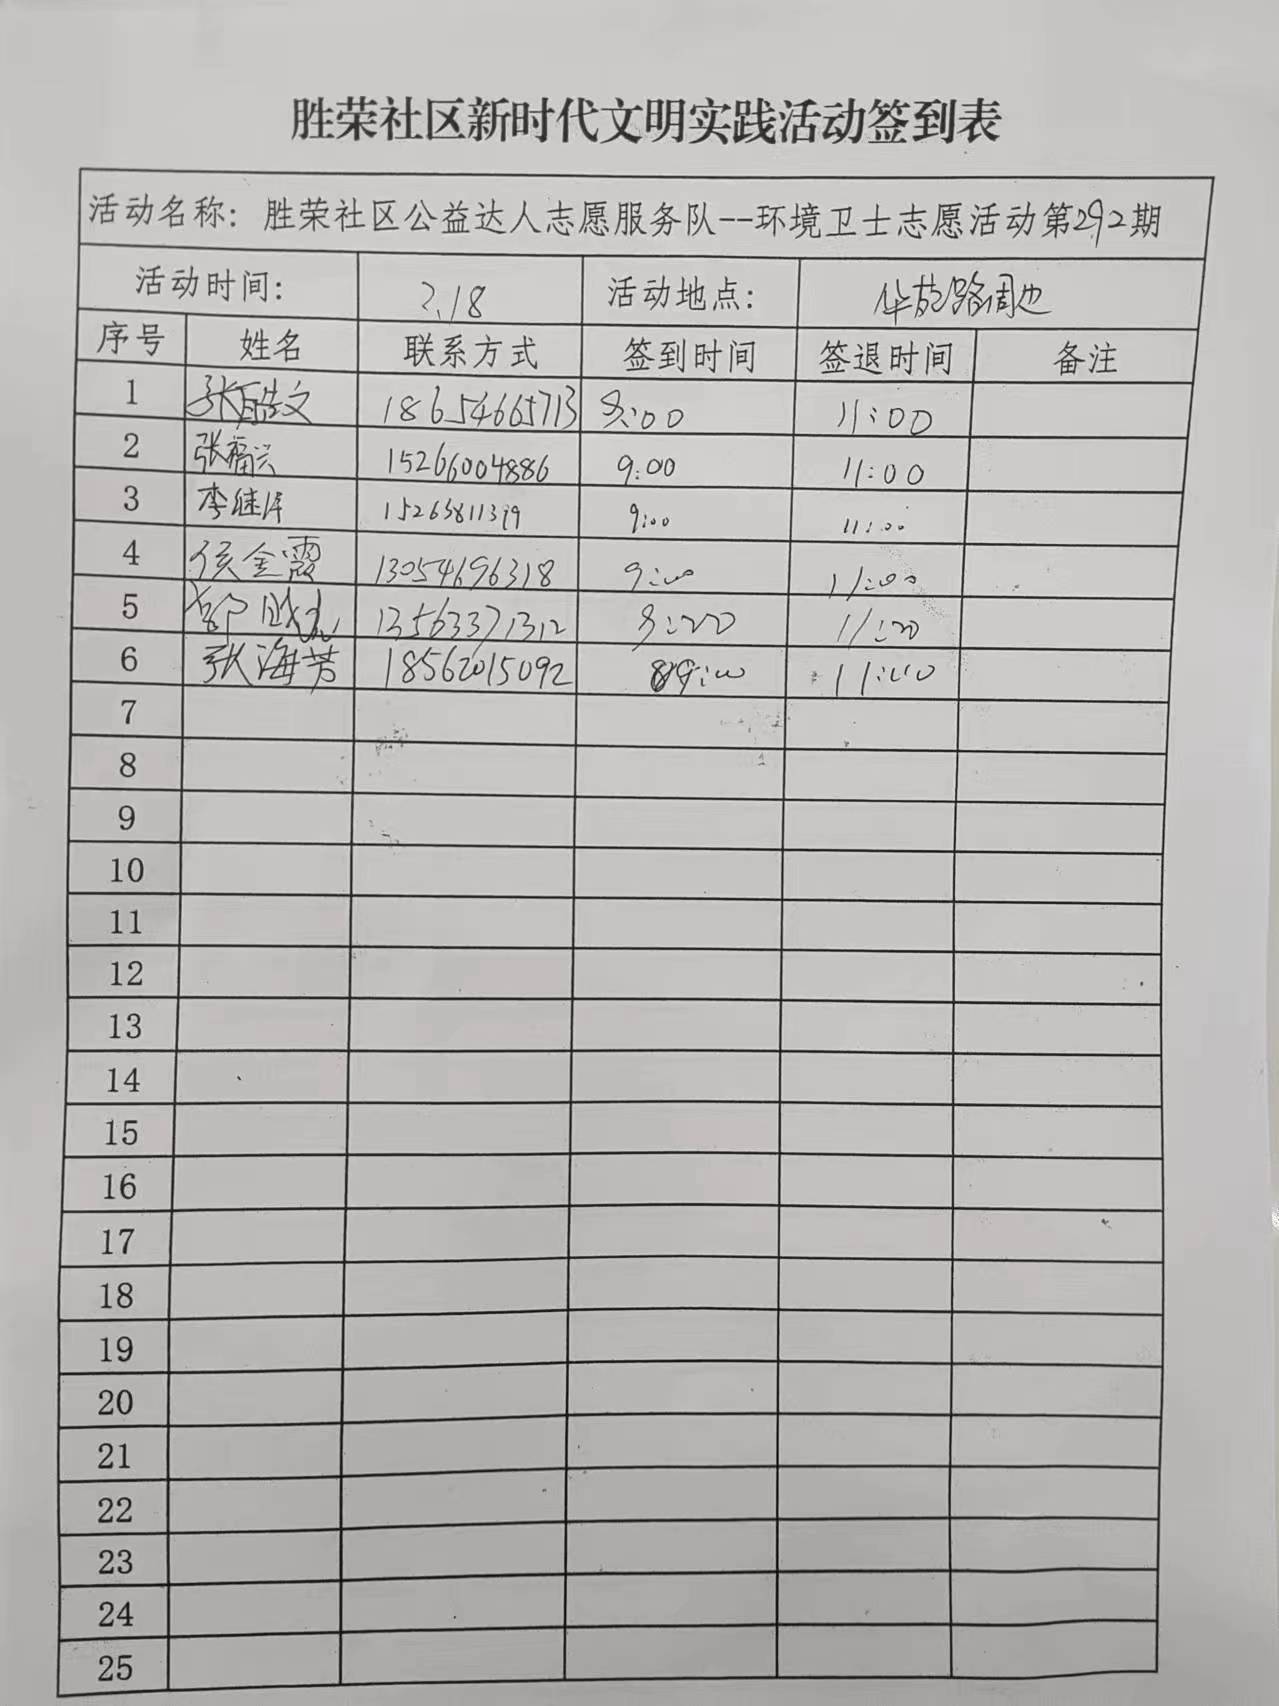 胜荣社区新时代文明实践活动签到表
活动名称：胜荣社区公益达人志愿服务队--环境卫士志愿活动第292期
活动时间： 2.18 活动地点： 华旋路周边
序号 姓名 联系方式 签到时间 签退时间 备注
1 张酷文 18654665713 9:00 11:00
2 张福兴 15266004886 9:00 11:00
3 李继泽 15263811319 9:00 11:00
4 侯金霞 13054696318 9:00 11:00
5 13563371312 9:00 11:00
6 张海芳 18562015092 9:00 11:00
7
8
9
10
11
12
13
14
15
16
17
18
19
20
21
22
23
24
25